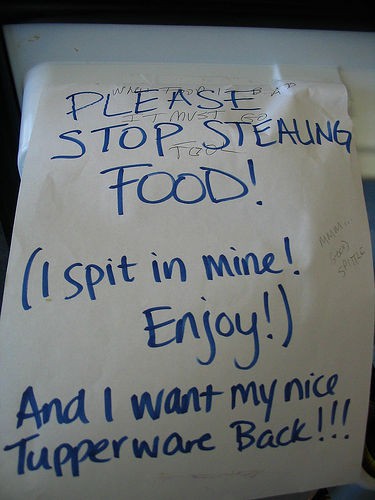 WHAT FOOD IS BAD
PLEASE
IT MUST GO
STOP STEALING
TOO
FOOD!
MMM...
GOOD
SPITTLE
(I spit in mine!
Enjoy!)
And I want my nice
Tupperware Back!!!